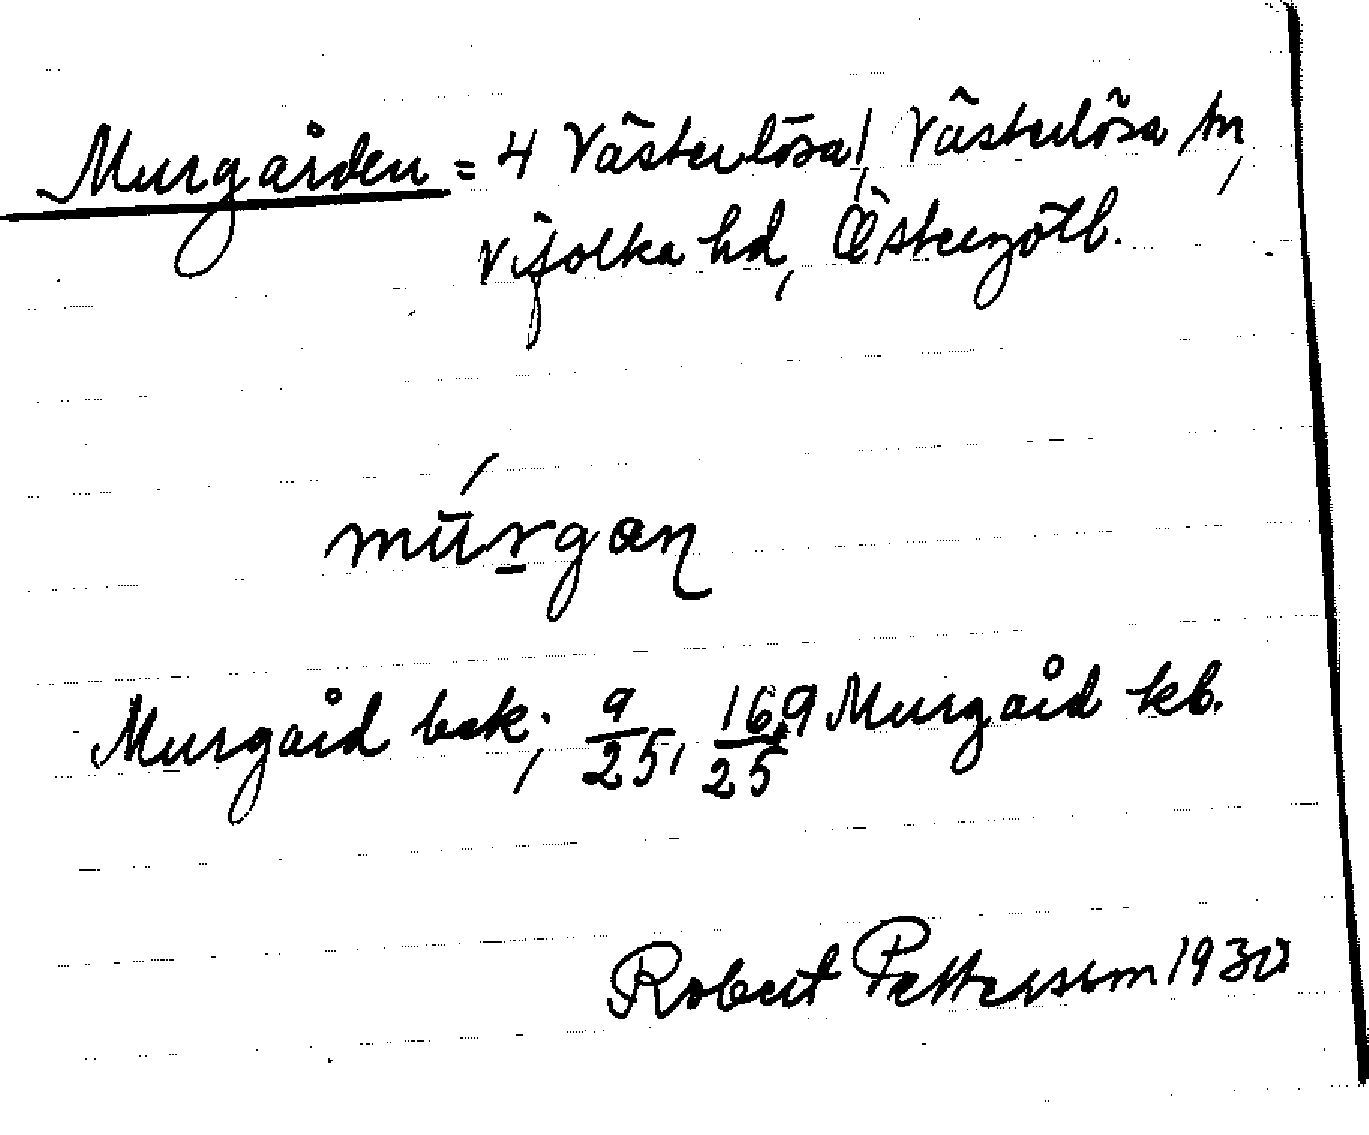 Murgården = 4 Västerlösa, Västerlösa sn,
Vifolka hd, Östergötl.
mū́rgan
Murgård bek; 9/25, 16,9/25 Murgård kb.
Robert Pettersson 1930